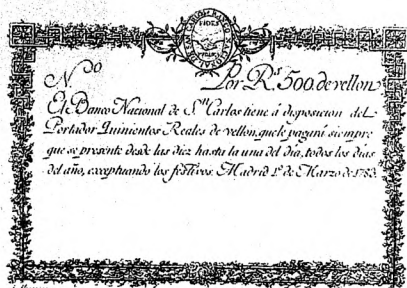 Nº Por Rˢ 500. de vellon
El Banco Nacional de Sⁿ Carlos tiene á disposicion del
Portador Quinientos Reales de vellon, que le pagará siempre
que se presente desde las diez hasta la una del dia, todos los dias
del año, exceptuando los festivos. Madrid 1º de Marzo de 1783.